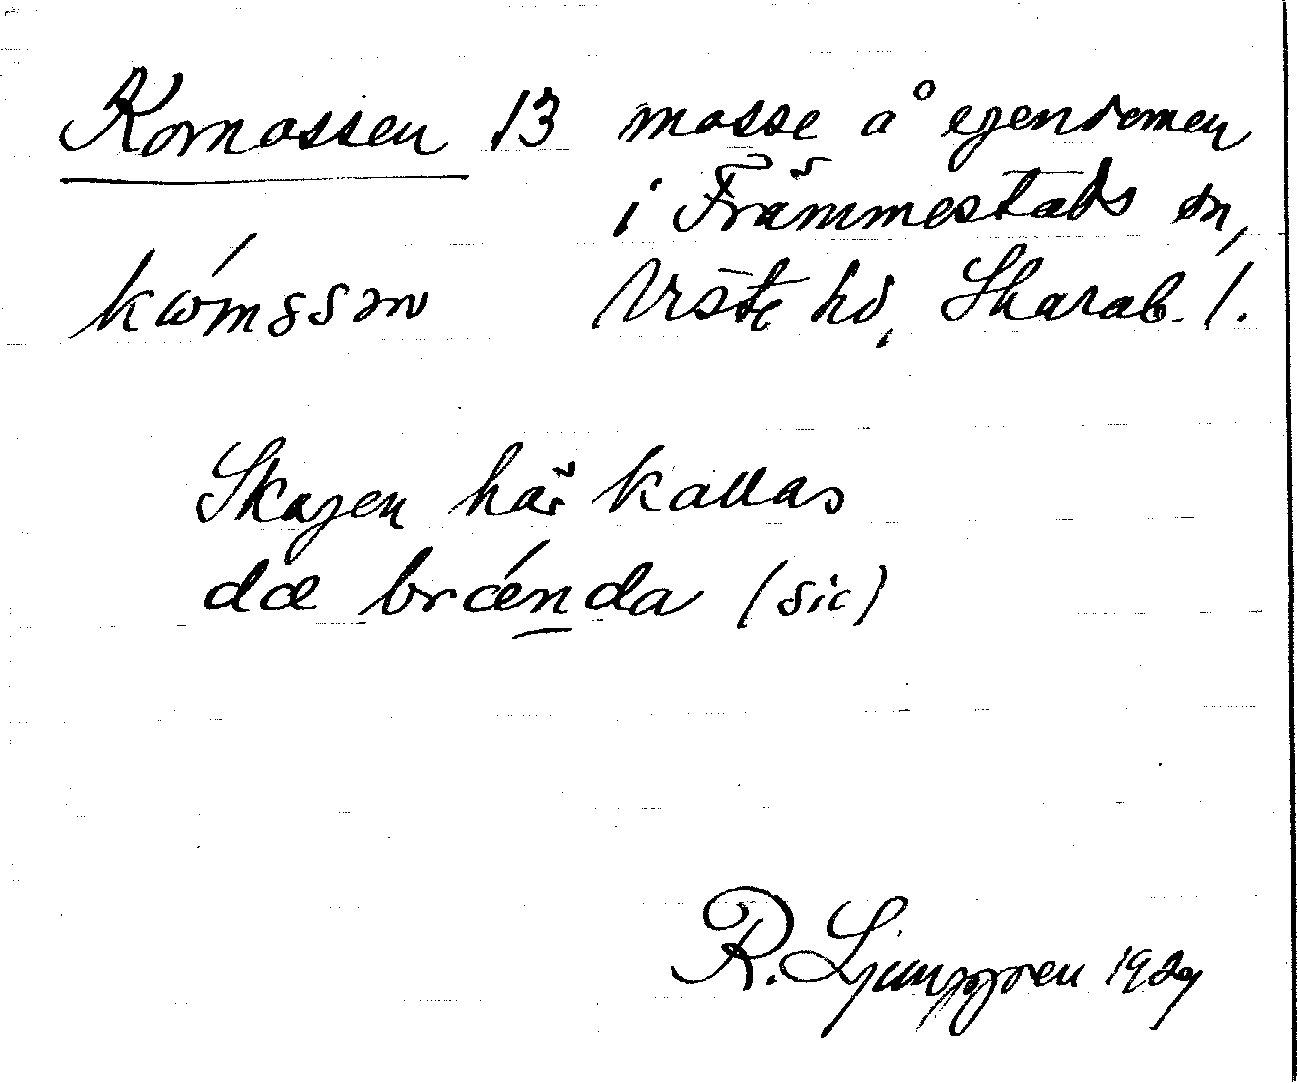 Komossen 13 mosse å egendomen
i Främmestads sn,
kωmssən Viste hd, Skarab. l.
Skogen här kallas
dæ brænda (sic)
R. Ljunggren 1929